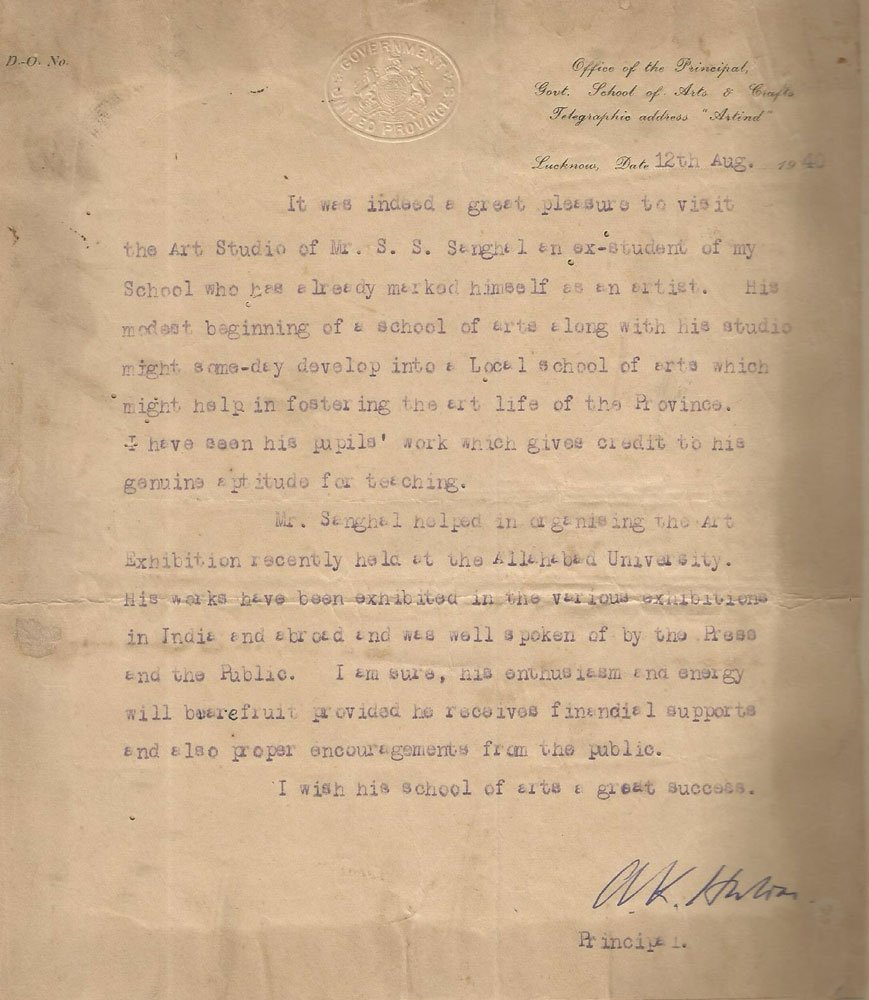 D.-O. No.
GOVERNMENT
UNITED PROVINCES
Office of the Principal,
Govt. School of Arts & Crafts
Telegraphic address "Artind"
Lucknow, Date 12th Aug. 194
It was indeed a great pleasure to visit
the Art Studio of Mr. S. S. Sanghal an ex-student of my
School who has already marked himself as an artist. His
modest beginning of a school of arts along with his studio
might some-day develop into a Local school of arts which
might help in fostering the art life of the Province.
I have seen his pupils' work which gives credit to his
genuine aptitude for teaching.
Mr. Sanghal helped in organising the Art
Exhibition recently held at the Allahabad University.
His works have been exhibited in the various exhibitions
in India and abroad and was well spoken of by the Press
and the Public. I am sure, his enthusiasm and energy
will beare fruit provided he receives financial supports
and also proper encouragements from the public.
I wish his school of arts a great success.
A.K.
Principal.